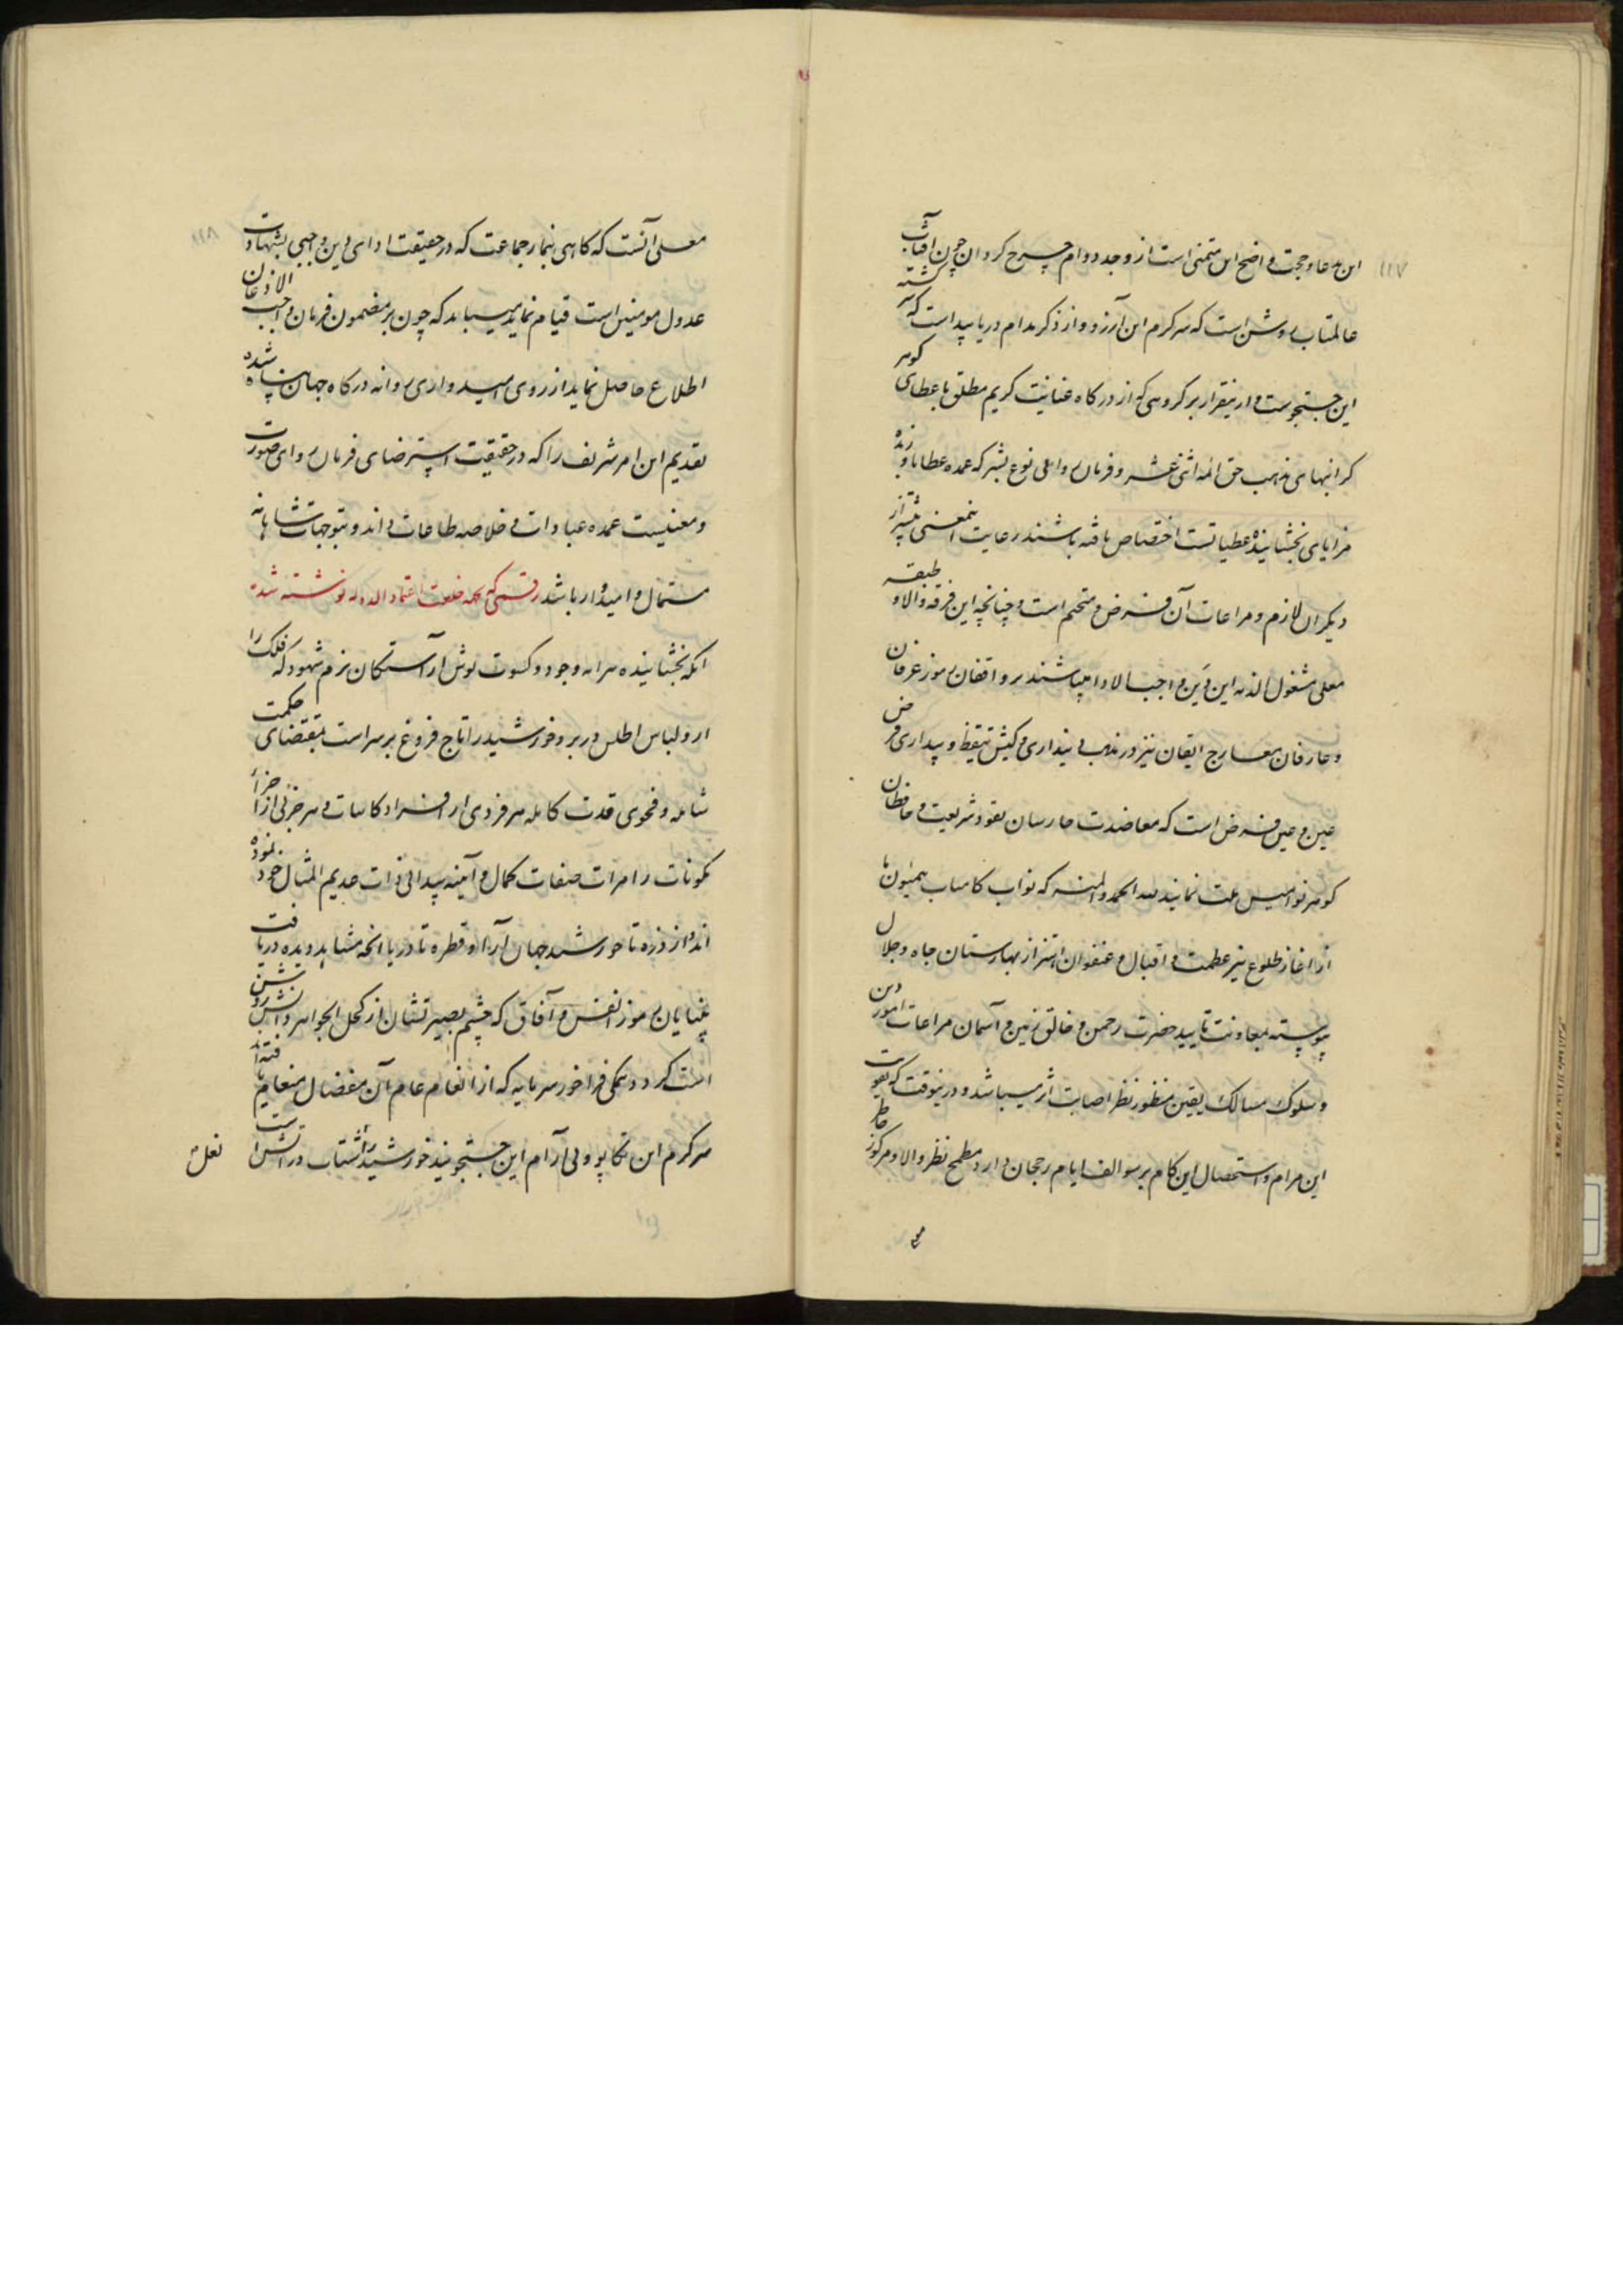 ۱۱۷
این مدعا و حجت واضح این متمنی است از وجد دوام چرخ کردان چون آفتاب
عالمتاب روشن است که سرکرم این آرزو و از ذکر مدام دریا پیداست که سرکشته
این جستجوست و ازینقرار بر کروهی که از درکاه عنایت کریم مطلق باعطای کوهر
کرانبهای مذهب حق ائمه اثنی عشر و فرمان روایی نوع بشر که عمده عطایا و زبده
مزایای بخشاینده عطیاتست اختصاص یافته باشند رعایت اینمعنی بیشتر از
دیکران لازم و مراعات آن فرض و متحتم است و چنانچه این فرقه والا و طبقه
معلی مشغول الذمه این دین واجب الادا میباشند بر واقفان رموز عرفان
و عارفان معارج ایقان نیز در مذهب دینداری و کیش تیقظ و بیداری فرض
عین و عین فرض است که معاضدت حارسان نقود شریعت و حافظان
کوهر نوامیس ملت نمایند لله الحمد والمنه که نواب کامیاب همیون ما
از آغاز طلوع نیر عظمت و اقبال و عنفوان اهتزاز بهارستان جاه و جلال
پیوسته بمعاونت تایید حضرت رحمن و خالق زمین و آسمان مراعات امور دین
و سلوک مسالک یقین منظور نظر اصابت اثر میباشد و درینوقت که تقویت
این مرام و استحصال این کام بر سوالف ایام رجحان دارد مطمح نظر والا و مرکوز خاطر
۱۱۸
معلی آنست که کاهی بنماز جماعت که در حقیقت ادای دین واجبی بشهادت
عدول مومنین است قیام نماییم میباید که چون بر مضمون فرمان واجب الاذعان
اطلاع حاصل نماید از روی امیدواری روانه درکاه جهان پناه شده
تقدیم این امر شریف را که در حقیقت استرضای فرمان روای صورت
و معنیست عمده عبادات و خلاصه طاعات داند و بتوجهات شاهانه
مستمال و امیدوار باشد رقمی که بجهة خلعت اعتمادالدوله نوشته شده
آنکه بخشاینده سرایه وجود و کسوت پوش آراستکان بزم شهود که فلک را
ازو لباس اطلس در بر و خورشید را تاج فروغ بر سر است بمقتضای حکمت
شامله و فحوای قدرت کامله هر فردی از افراد کاینات و هر جزئی از اجزاء
مکونات را مرات صفات کمال و آینه پیدائی ذات عدیم المثال خود نموده
اند و از ذره تا خورشید جهان آرا و قطره تا دریا آنچه مشاهد دیده دریافت
بینایان رموز انفس و آفاق که چشم بصیرتشان از کحل الجواهر دانش روشن
است کردد همکی فراخور سرمایه که از انعام عام آن مفضال منعام یافته اند
سرکرم این تکاپو و بی آرام این جستجویند خورشید را شتاب در آتش است
نعل